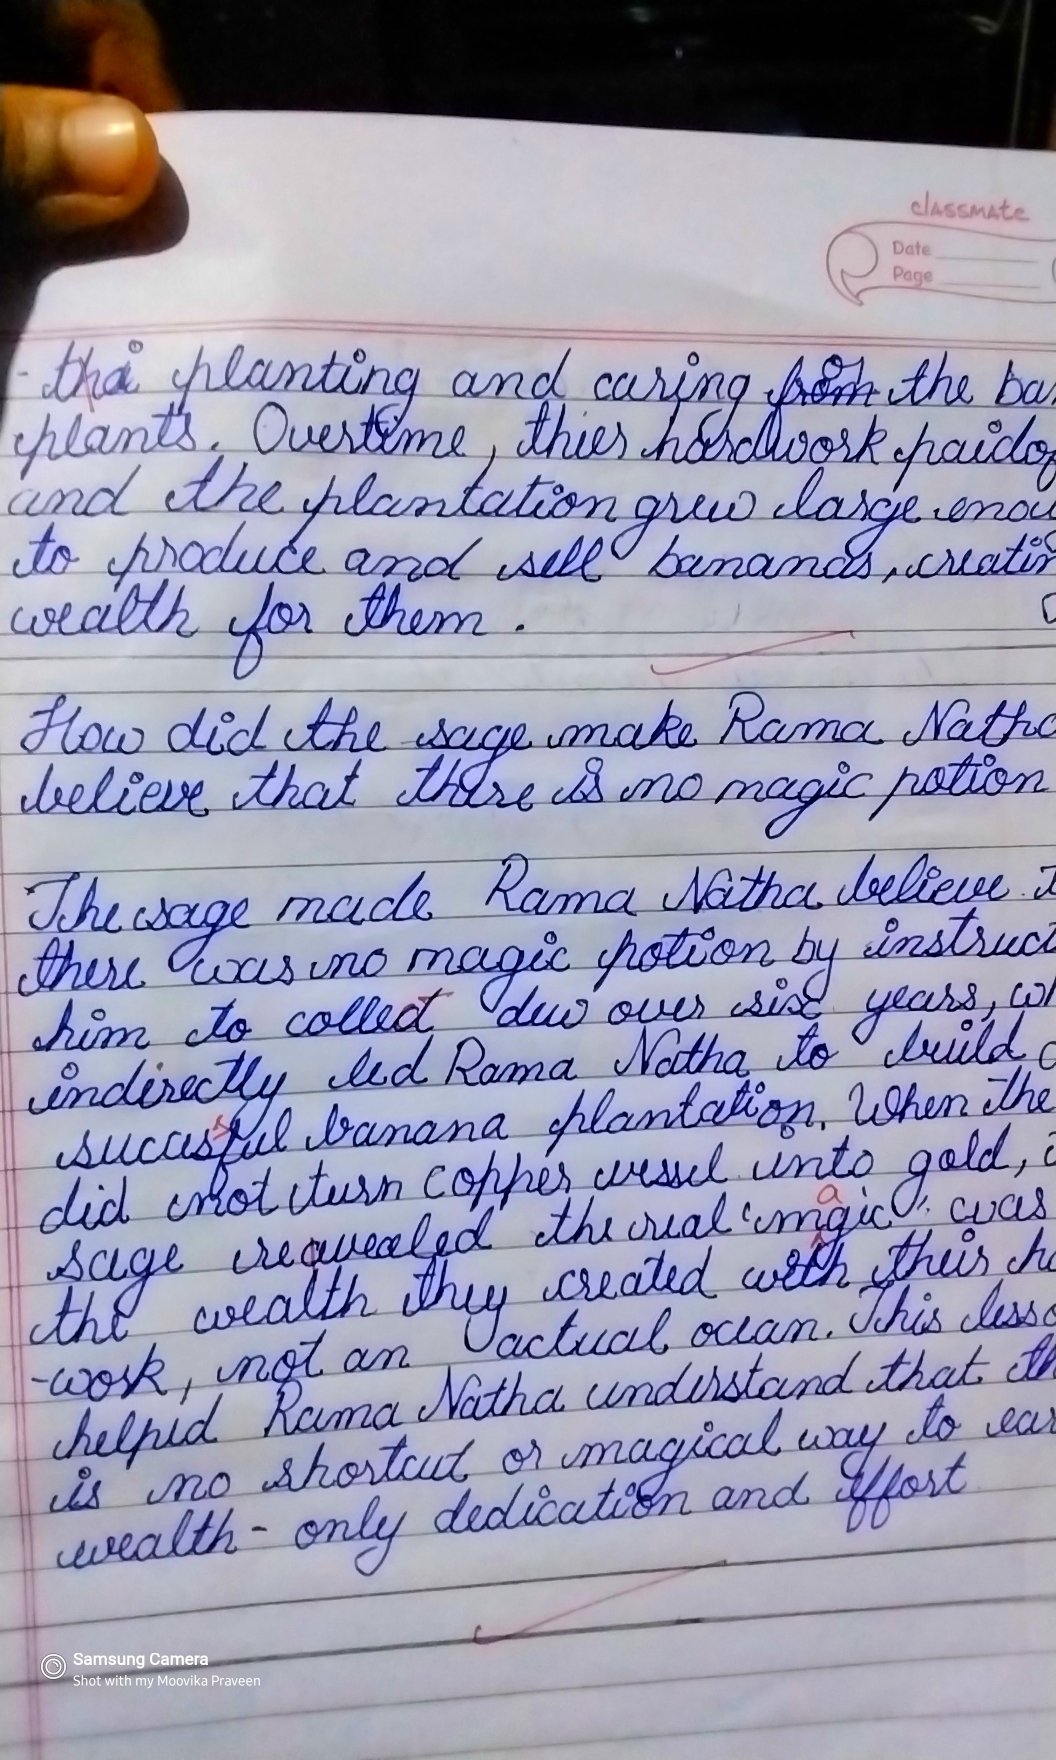 classmate
Date
Page
planting and caring the
plants. Overtime, thier hardwork paid
and the plantation grew large
to produce and sell bananas,
wealth for them.
How did the sage make Rama
believe that there is no magic potion
The sage made Rama Natha believe
there was no magic potion by
him to collect dew over six years,
indirectly led Rama Natha to build
sucessful banana plantation. When the
did not turn copper vessel into gold,
sage the real "magic" was
the wealth they created with their
-work, not an actual ocean. This
helped Rama Natha understand that
is no shortcut or magical way to
wealth - only dedication and effort
Samsung Camera
Shot with my Moovika Praveen